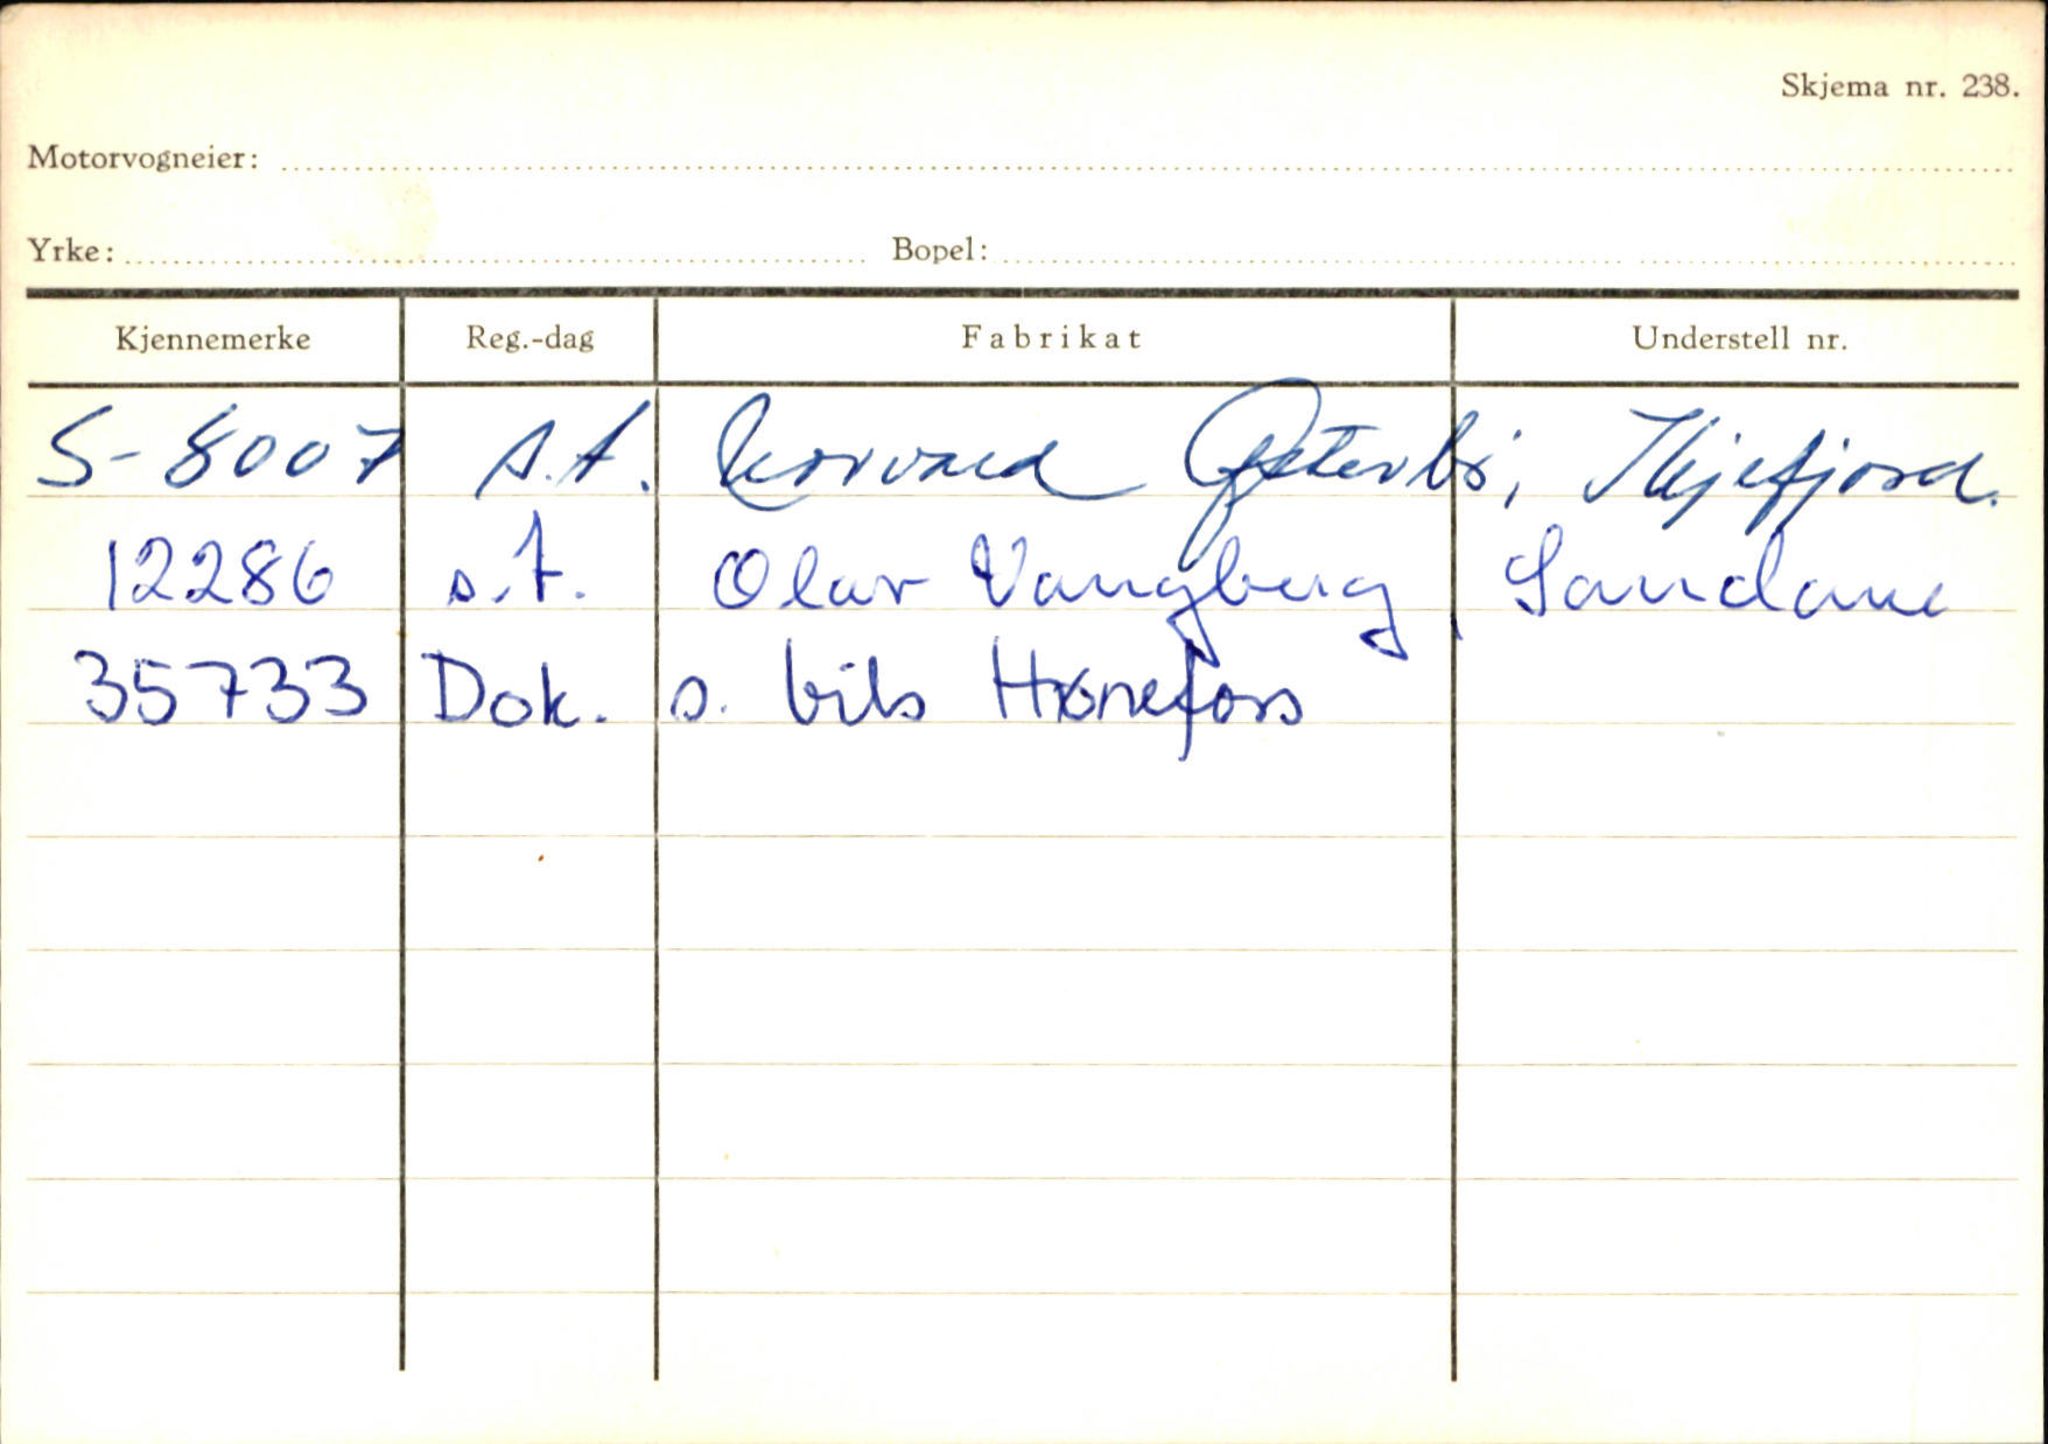 Skjema nr. 238.
Motorvogneier:
Yrke: Bopel:
Kjennemerke Reg.-dag Fabrikat Understell nr.
S-8007 s.t. Korvald Østerbø, Ikjefjord.
12286 s.t. Olav Vangberg, Sandane
35733 Dok. s. bils Hønefoss